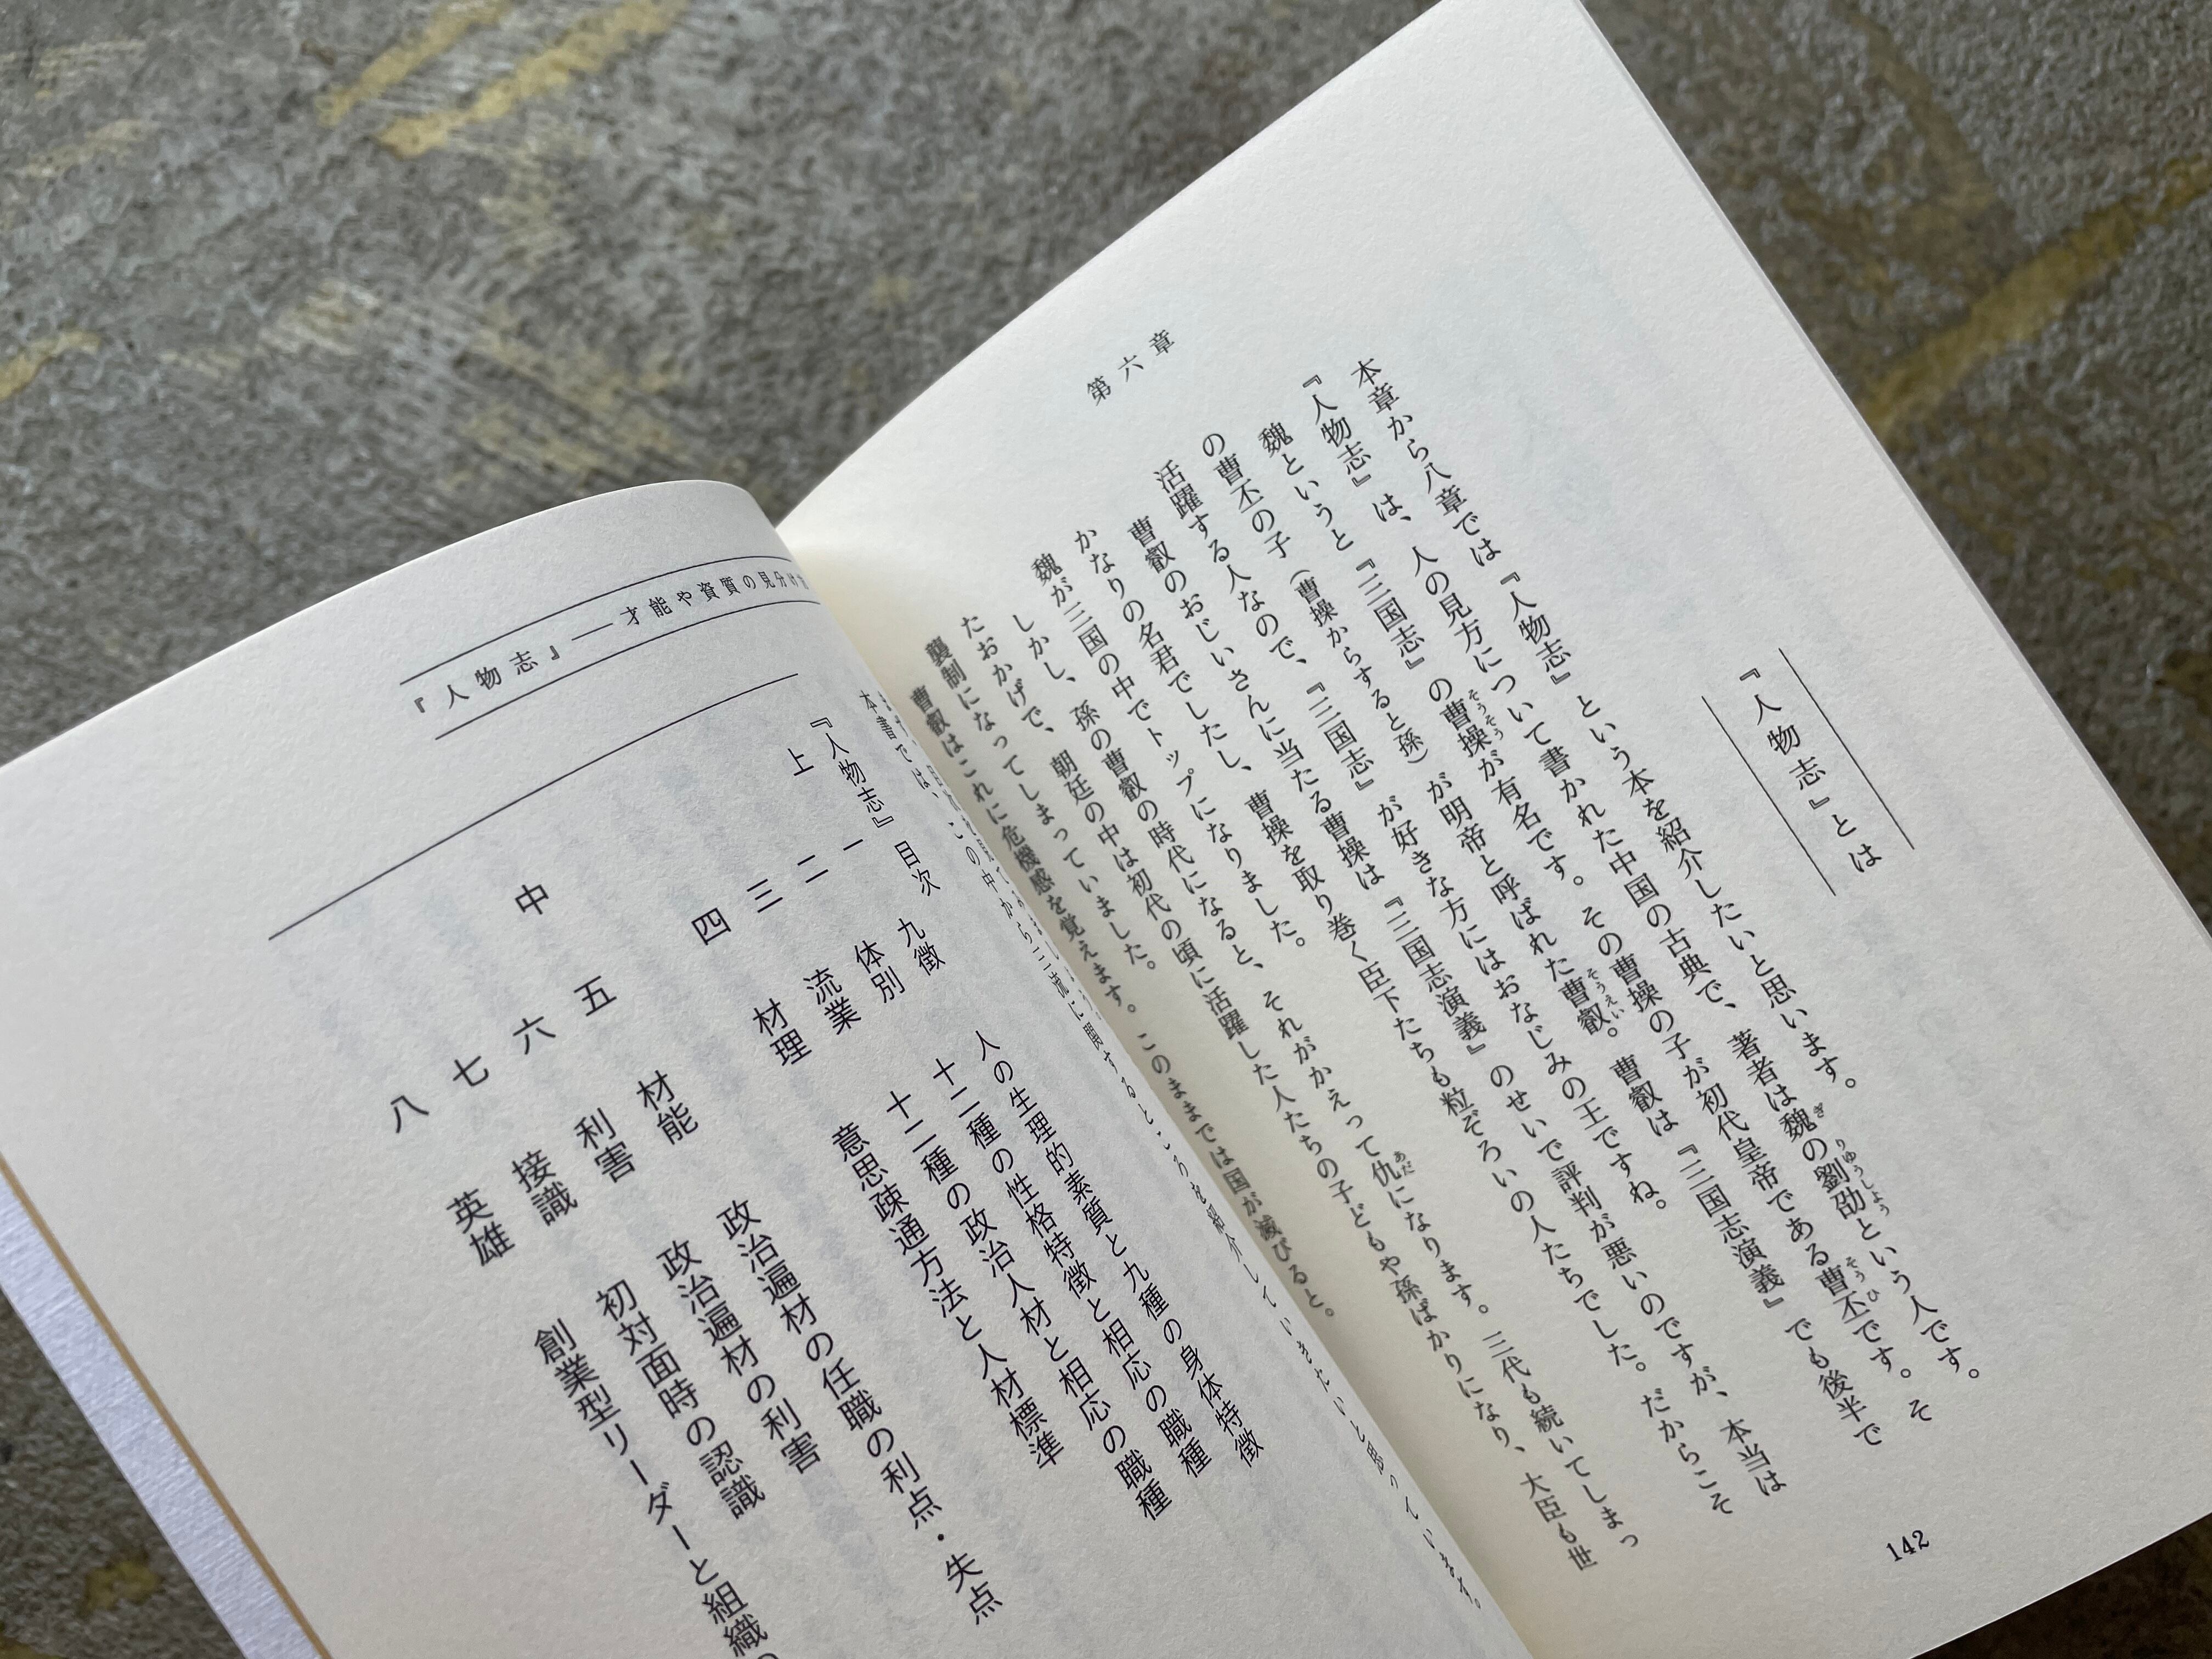 第六章
『人物志』とは
本章から八章では『人物志』という本を紹介したいと思います。
『人物志』は、人の見方について書かれた中国の古典で、著者は魏の劉劭という人です。
魏というと『三国志』の曹操が有名です。その曹操の子が初代皇帝である曹丕です。そ
の曹丕の子（曹操からすると孫）が明帝と呼ばれた曹叡。曹叡は『三国志演義』でも後半で
活躍する人なので、『三国志』が好きな方にはおなじみの王ですね。
曹叡のおじいさんに当たる曹操は『三国志演義』のせいで評判が悪いのですが、本当は
かなりの名君でしたし、曹操を取り巻く臣下たちも粒ぞろいの人たちでした。だからこそ
魏が三国の中でトップになりました。
しかし、孫の曹叡の時代になると、それがかえって仇になります。三代も続いてしまっ
たおかげで、朝廷の中は初代の頃に活躍した人たちの子どもや孫ばかりになり、大臣も世
襲制になってしまっていました。
曹叡はこれに危機感を覚えます。このままでは国が滅びると。
142
『人物志』――才能や資質の見分け
本書では、この中から三流に関するところを紹介していきたいと思っています。
『人物志』目次
上
一 九徴 人の生理的素質と九種の身体特徴
二 体別 十二種の性格特徴と相応の職種
三 流業 十二種の政治人材と相応の職種
四 材理 意思疎通方法と人材標準
中
五 材能 政治遍材の任職の利点・失点
六 利害 政治遍材の利害
七 接識 初対面時の認識
八 英雄 創業型リーダーと組織